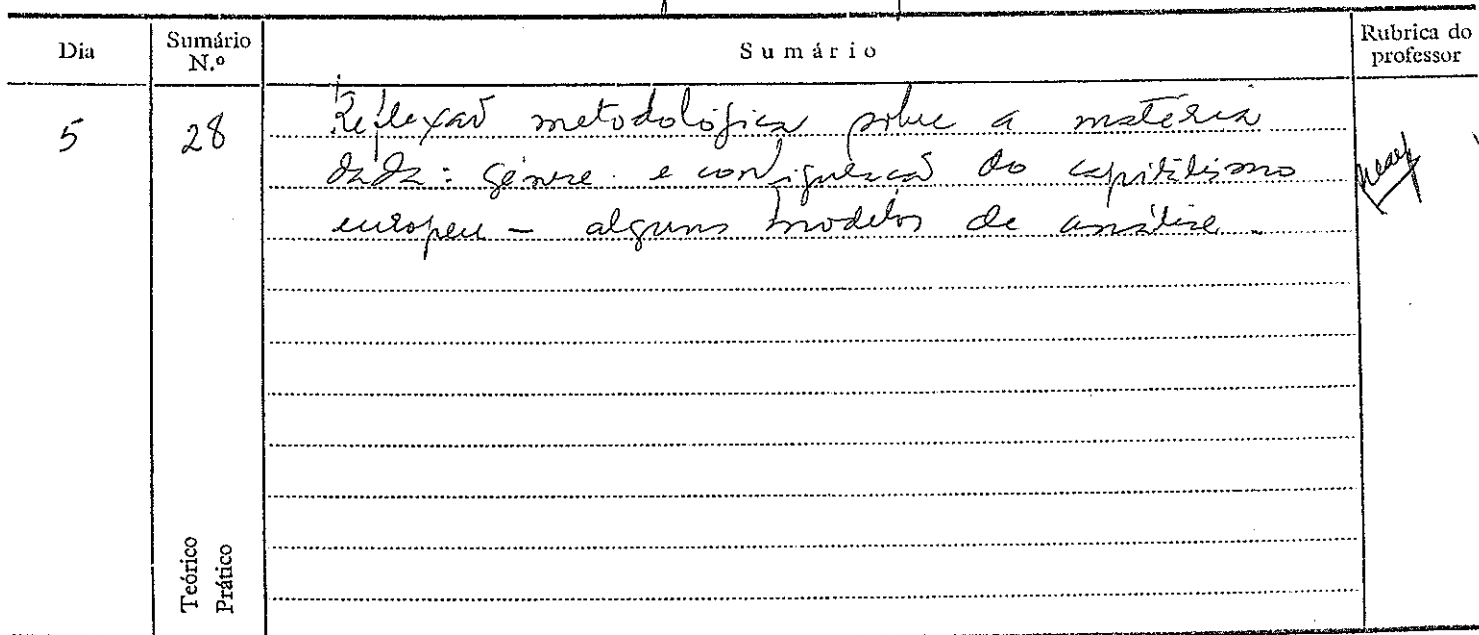 Dia
Sumário
N.º
Sumário
Rubrica do
professor
5
28
Reflexão metodológica sobre a matéria
dada: génese e configuração do capitalismo
europeu — alguns modelos de análise.
Teórico
Prático